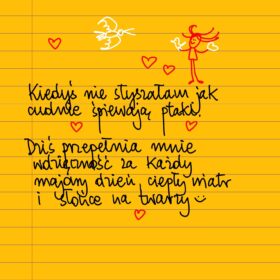 Kiedyś nie słyszałam jak
cudnie śpiewają ptaki.
Dziś przepełnia mnie
wdzięczność za każdy
majowy dzień, ciepły wiatr
i słońce na twarzy